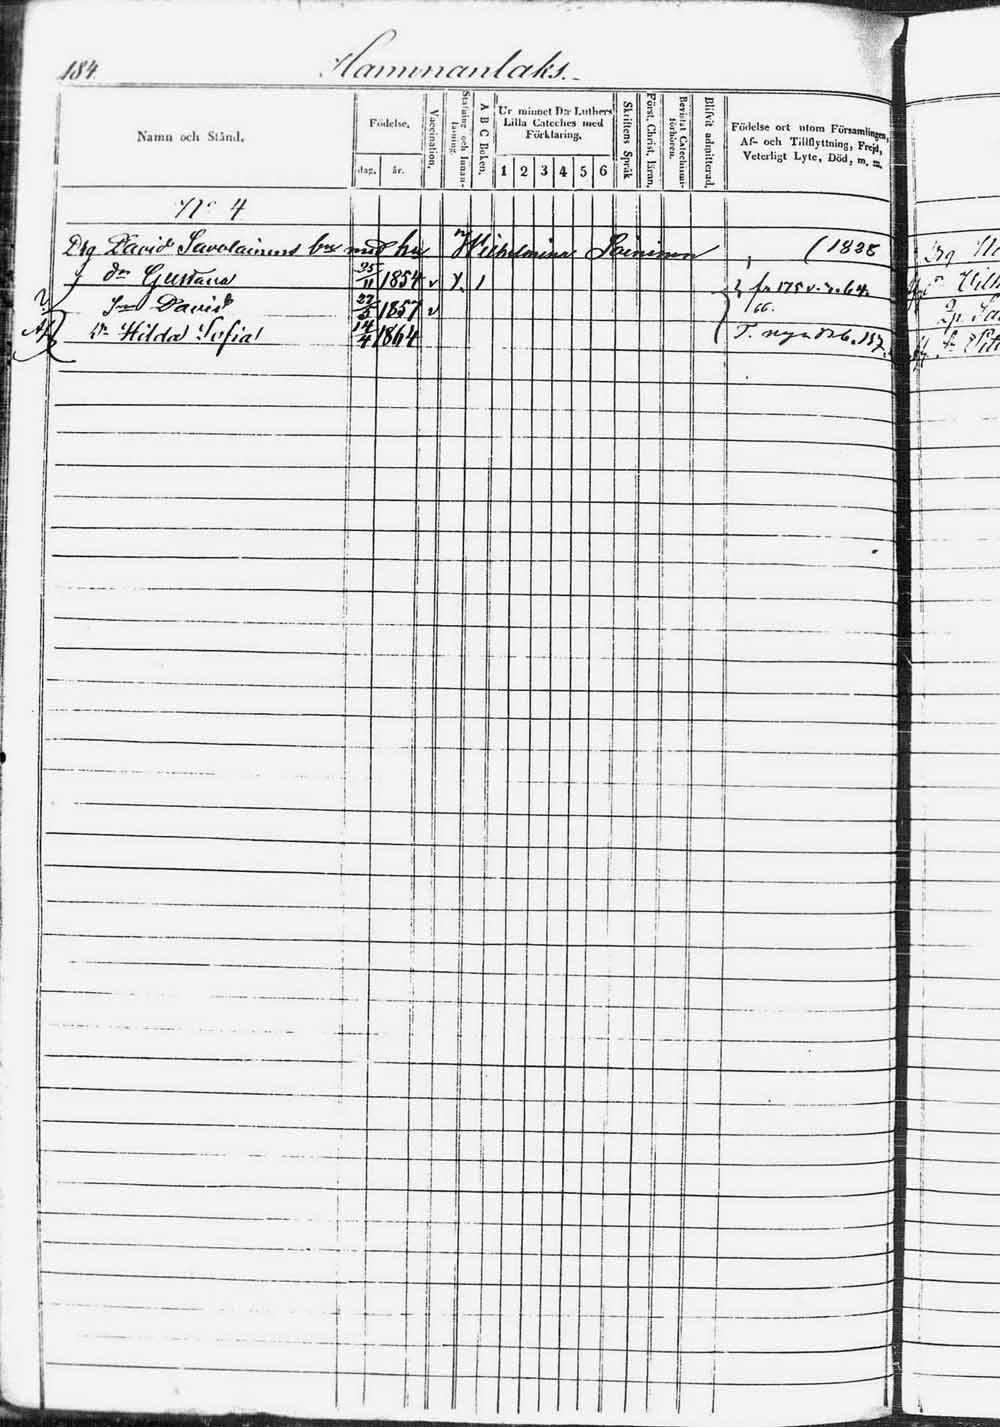 184.
Hamınanlaks.
Namn och Stånd.
Födelse.
dag.
år.
Vaccination.
Stafning och Innanläsning.
A B C Boken.
Ur minnet D:r Luthers
Lilla Cateches med
Förklaring.
1 2 3 4 5 6
Skriftens Språk
Först. Christ. läran.
Bevistat Catechismi-förhören.
Blifvit admitterad.
Födelse ort utom Församlingen,
Af- och Tillflyttning, Frejd,
Veterligt Lyte, Död, m. m.
No 4
Drg David Savolainens med hu Wilhelmina (1838
dr Gustava 25/11 1854 v 1 fr 175 v. r. 64.
Sn David 27/5 1857 v 66.
dr Hilda Sofia 14/4 1864 T. nya 187